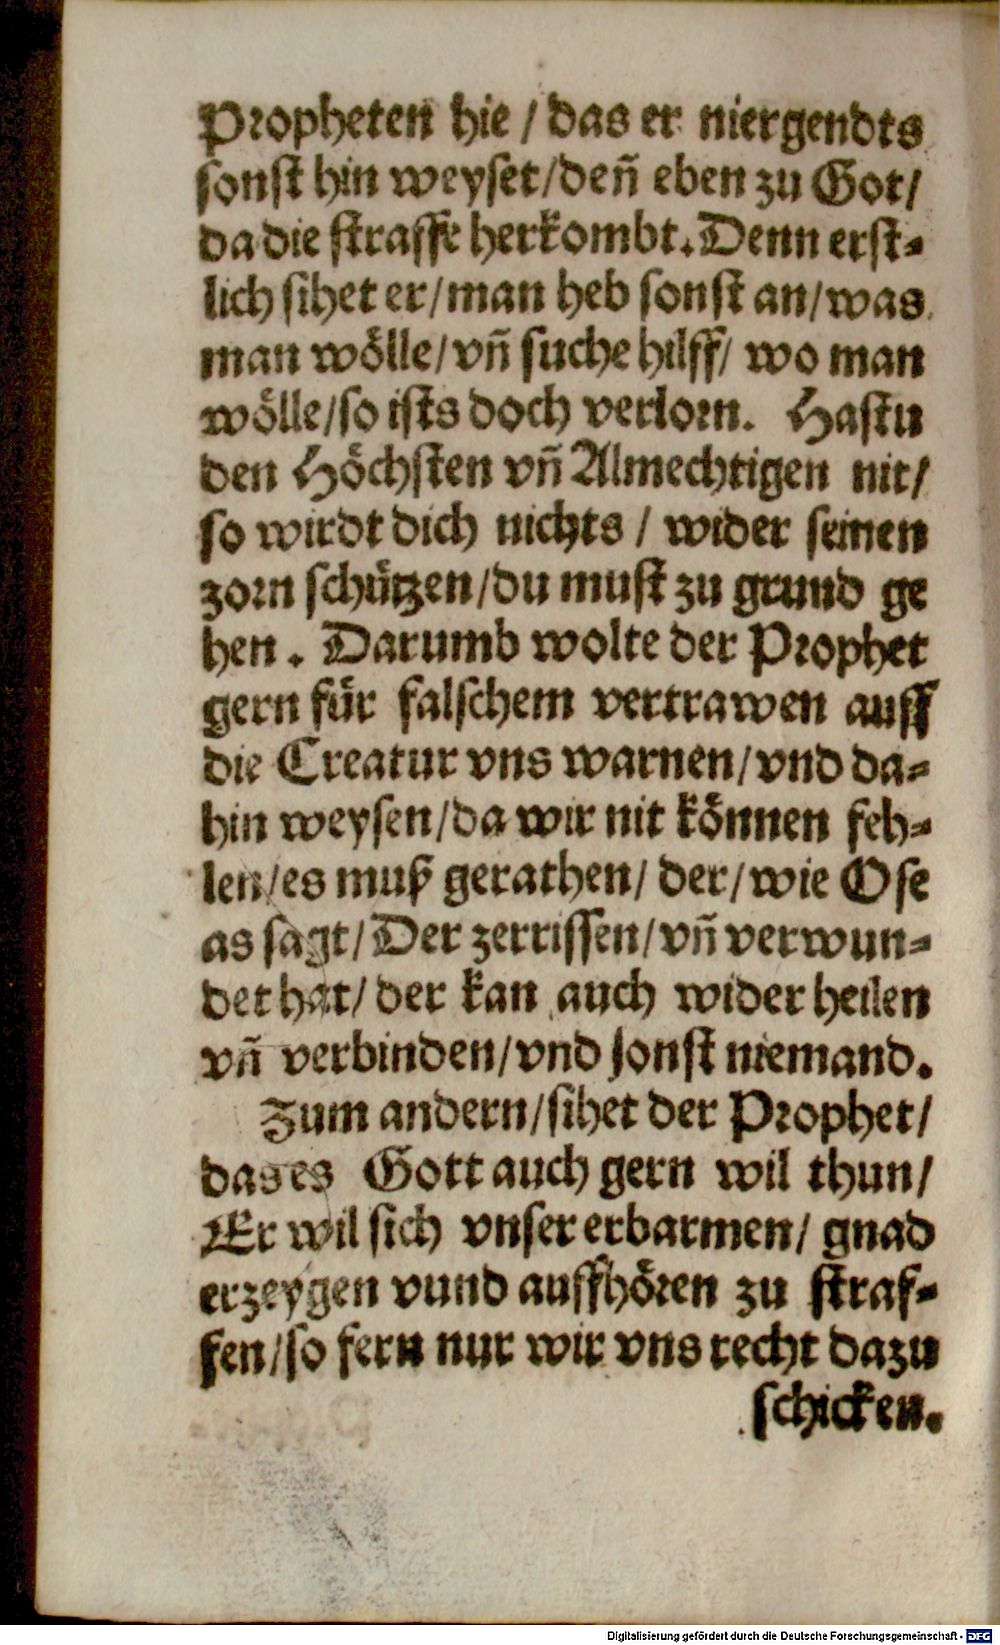 Propheten hie / das er niergendts
sonst hin weyset / deñ eben zu Got /
da die straffe herkombt. Denn erst⸗
lich sihet er / man heb sonst an / was
man wölle / vñ suche hilff / wo man
wölle / so ists doch verlorn. Hastu
den Höchsten vñ Almechtigen nit /
so wirdt dich nichts / wider seinen
zorn schützen / du must zu grund ge
hen. Darumb wolte der Prophet
gern für falschem vertrawen auff
die Creatur vns warnen / vnd da⸗
hin weysen / da wir nit können feh⸗
len / es muß gerathen / der / wie Ose
as sagt / Der zerrissen / vñ verwun⸗
det hat / der kan auch wider heilen
vñ verbinden / vnd sonst niemand.
Zum andern / sihet der Prophet /
das es Gott auch gern wil thun /
Er wil sich vnser erbarmen / gnad
erzeygen vund auffhören zu straf⸗
fen / so fern nur wir vns recht dazu
schicken.
Digitalisierung gefördert durch die Deutsche Forschungsgemeinschaft - DFG